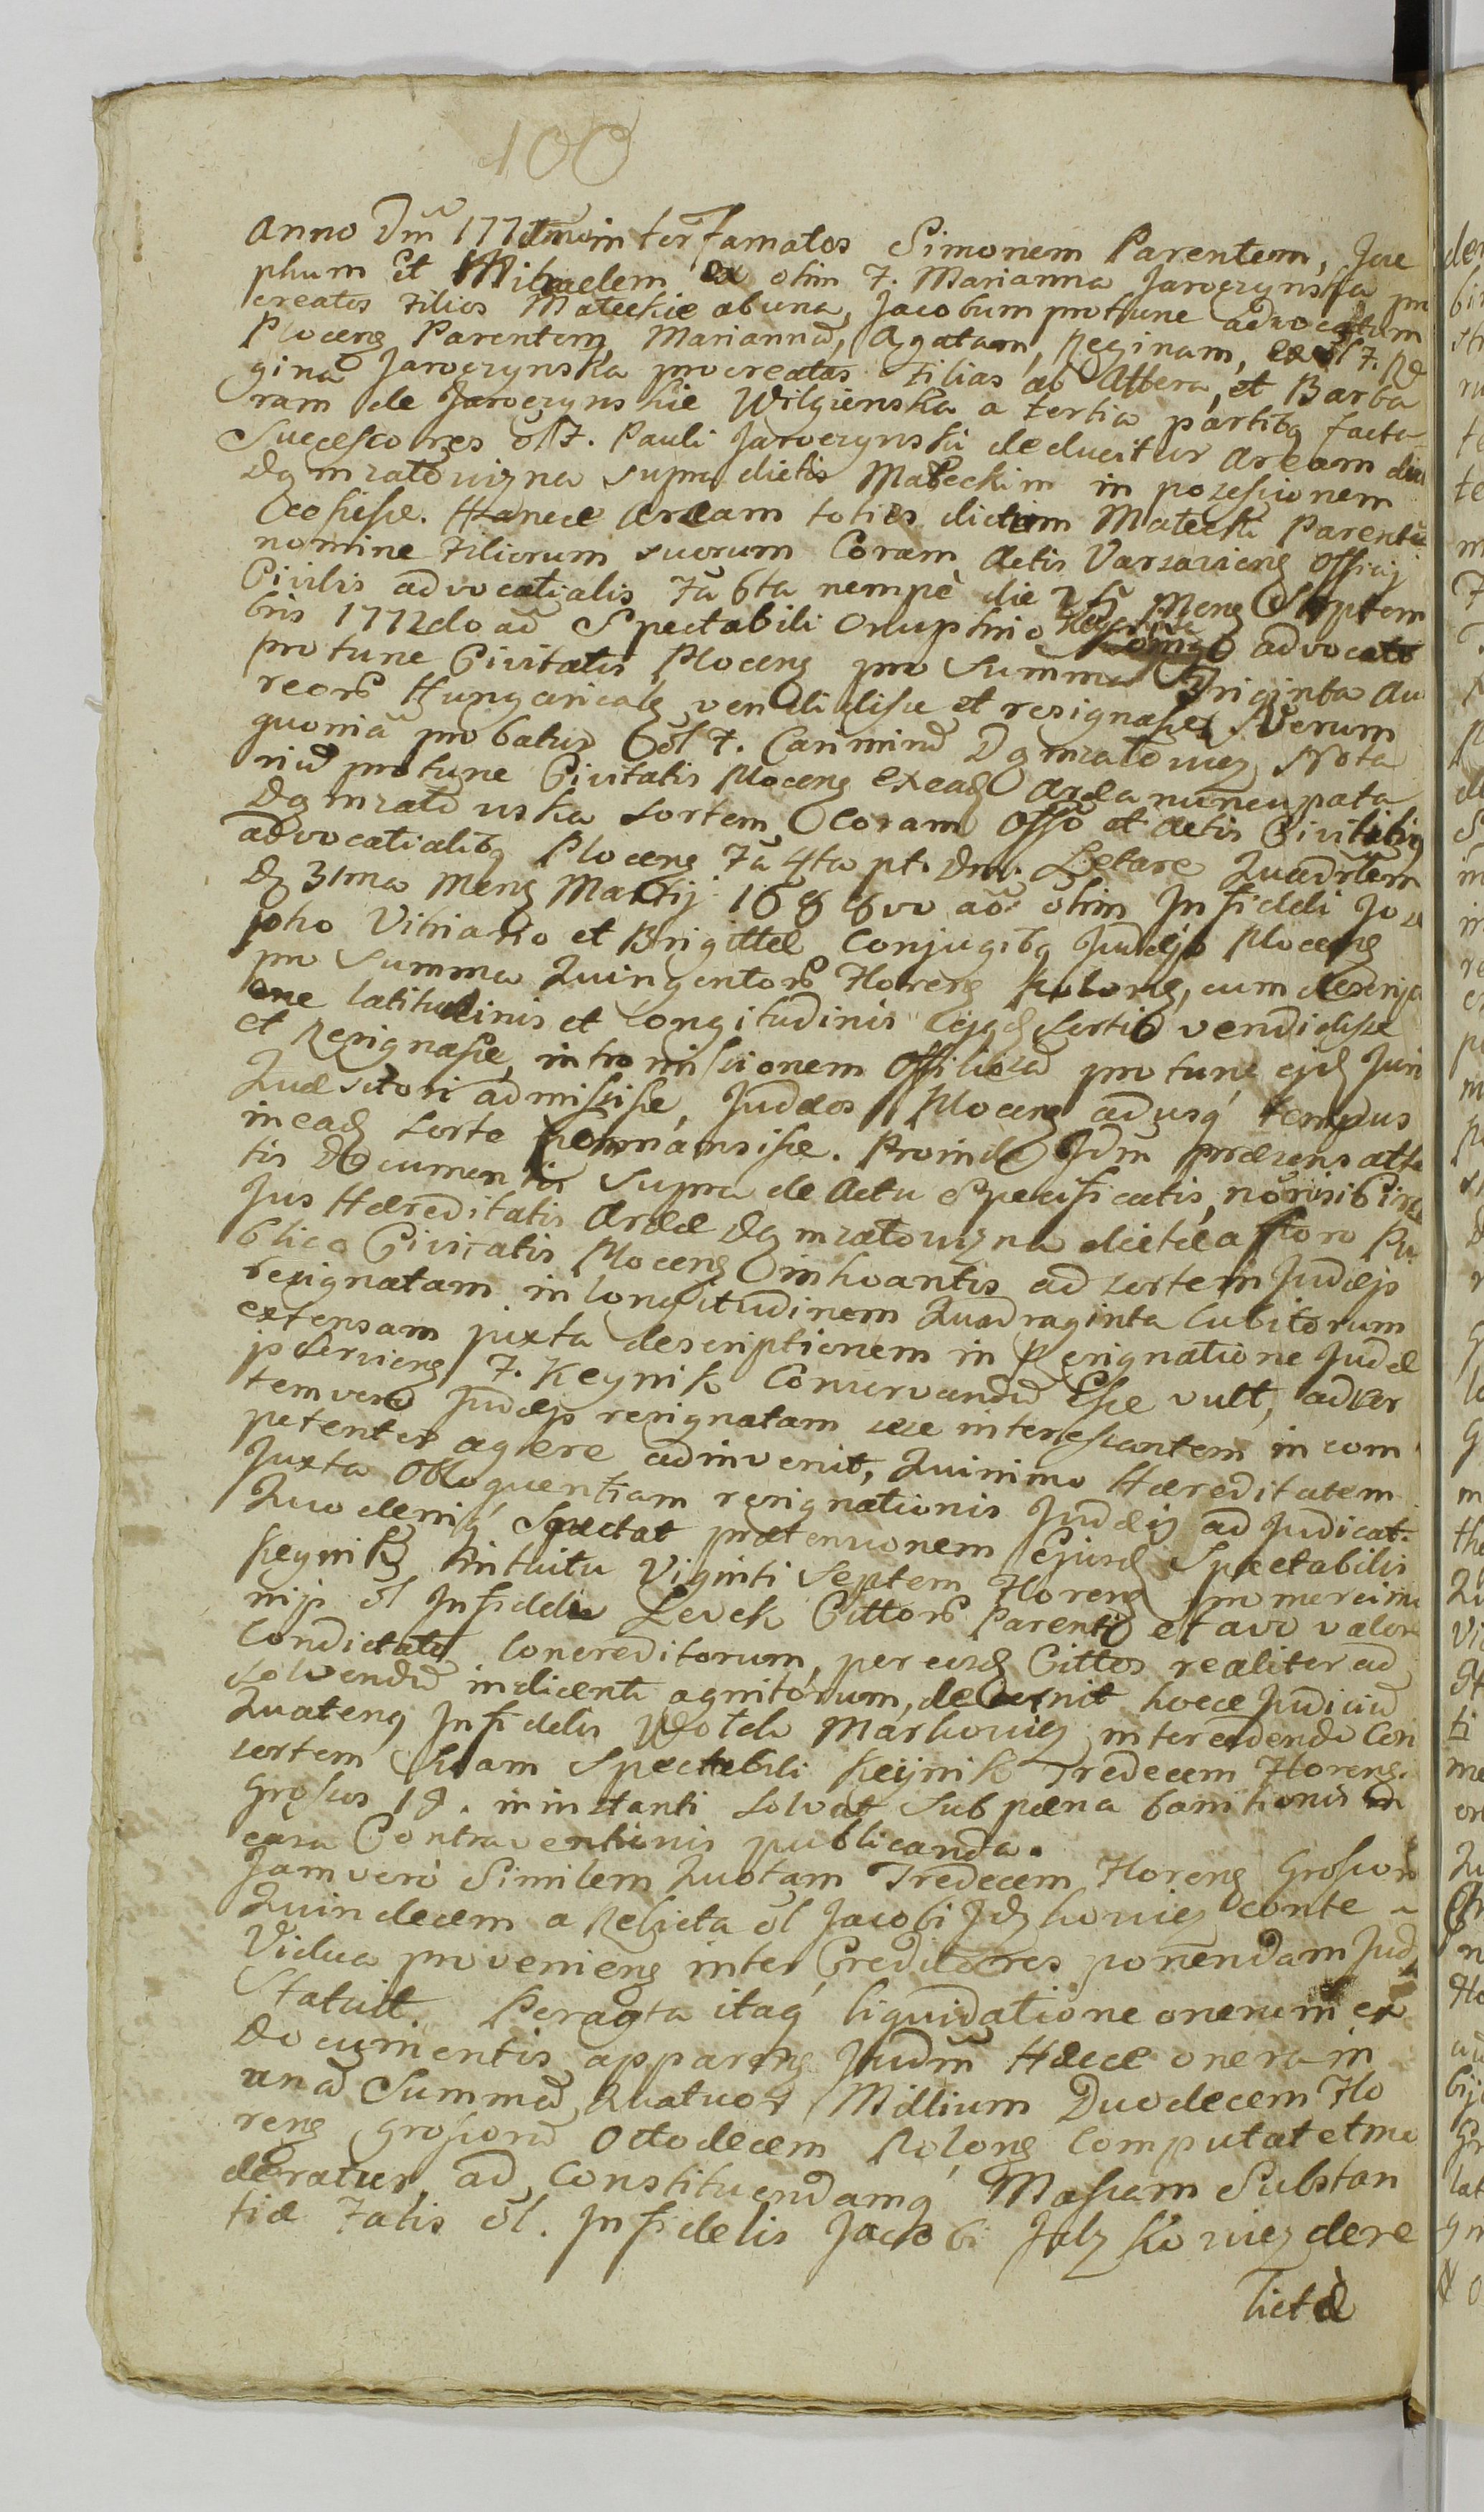 100
Anno Dni 177 inter Famatos Simonem Parentem, Jose
phum et Michaelem ex olim F. Marianna Jaroczynska pro
creatos Filios Mateckie ab una, Jacobum protunc advocatum
Plocens Parentem, Mariannā, Agatam, Reginam, ex ol F. Re
gina Jaroczynska procreatas Filias ab Altera, et Barba
ram de Jaroczynskie Wilgienska a tertia partibq facta
Successores ol F. Pauli Jaroczynski deducitur Aream
Dąmratowizna supra dictis Mateckim in possessionem
cessisse. Hancce Aream toties dictam Matecki Parente
nomine Filiorum suorum Coram Actis Varsaviens Officij
Civilis advocatialis Fa 6ta nempe die Mens Septem
bris 1772do ao Spectabili Onuphrio advocato
protunc Civitatis Plocens pro Summa Triginta Au
reorū Hungaricalz vendidisse et resignasse. Verum
quoniā probatur ol F. Dąmratowicz Nota
riū protunc Civitatis Plocens ex eadz Area nuncupata
Dąmratowska sortem Coram Offo et Actis Civilibus
advocatialibq Plocens Fa 4ta pt. Dnu. Letare Quadrlem
D 31ma Mens Martij 16 ao olim Infideli Jo
pho Vitriario et Brigittae Conjugibq Judæis Plocens
pro Summa Quingentorū Florens Polons, cum descripti
one latitudinis et longitudinis ejqd sortis vendidisse
et Resignasse, intromissionem protunc ejd Juri
Quæsitori admisisse, Judæos Plocens adusq tempus
in eadz sorte permansisse. Proinde Jdm præsens atte
tis Documentis supra de Actu Specificatis, nonnisi
Jus Hæreditatis Areæ Dąmratowizna dictæ a Foro Pu
blico Civitatis Plocens inhoantis ad sortem Judæis
resignatam in longitudinem Quadraginta Cubitorum
extensam juxta descriptionem in Resignatione Judæ
is serviens F. Keynik Conservandū Esse vult, ad sor
tem vero Judæis resignatam sese interessantem incom
petenter agere adinvenit, Quinimo Hæreditatem
juxta Obloquentiam resignationis Judæis adjudicat.
Quo denique Spectat prætensionem Ejusd Spectabilis
Keynik intuitu Viginti Septem Florens pro mercimo
nijs ol Infideli Levek Cittorū Parenti et avo valore
Condictato Concreditorum, per eosd Cittos realiter ad
solvendū indicenti agnitorum, decernit hocce Judiciū
Quatenq Infidelis Marhowicz intercedendo Con
sortem suam Spectabili Keynik Tredecem Florens.
Grossos 15. in instanti solvat sub pæna banitionis in
casu Contraventionis publicanda.
Jam vero Similem Quotam Tredecem Florens Grossorū
Quindecem a Relicta ol Jacobi conte
Vidua proveniens inter Creditores ponendam Jud
Statuit. Peracta itaq liquidatione onerum ex
documentis apparens Judm Hæcce onera in
unā Summā Quatuor Millium Duodecem Flo
rens Grossorū Octodecem Polons Computat et mo
deratur, ad Constituendamq Massam Substan
tiæ Talis ol. Infidelis Jacobi dere
lictæ